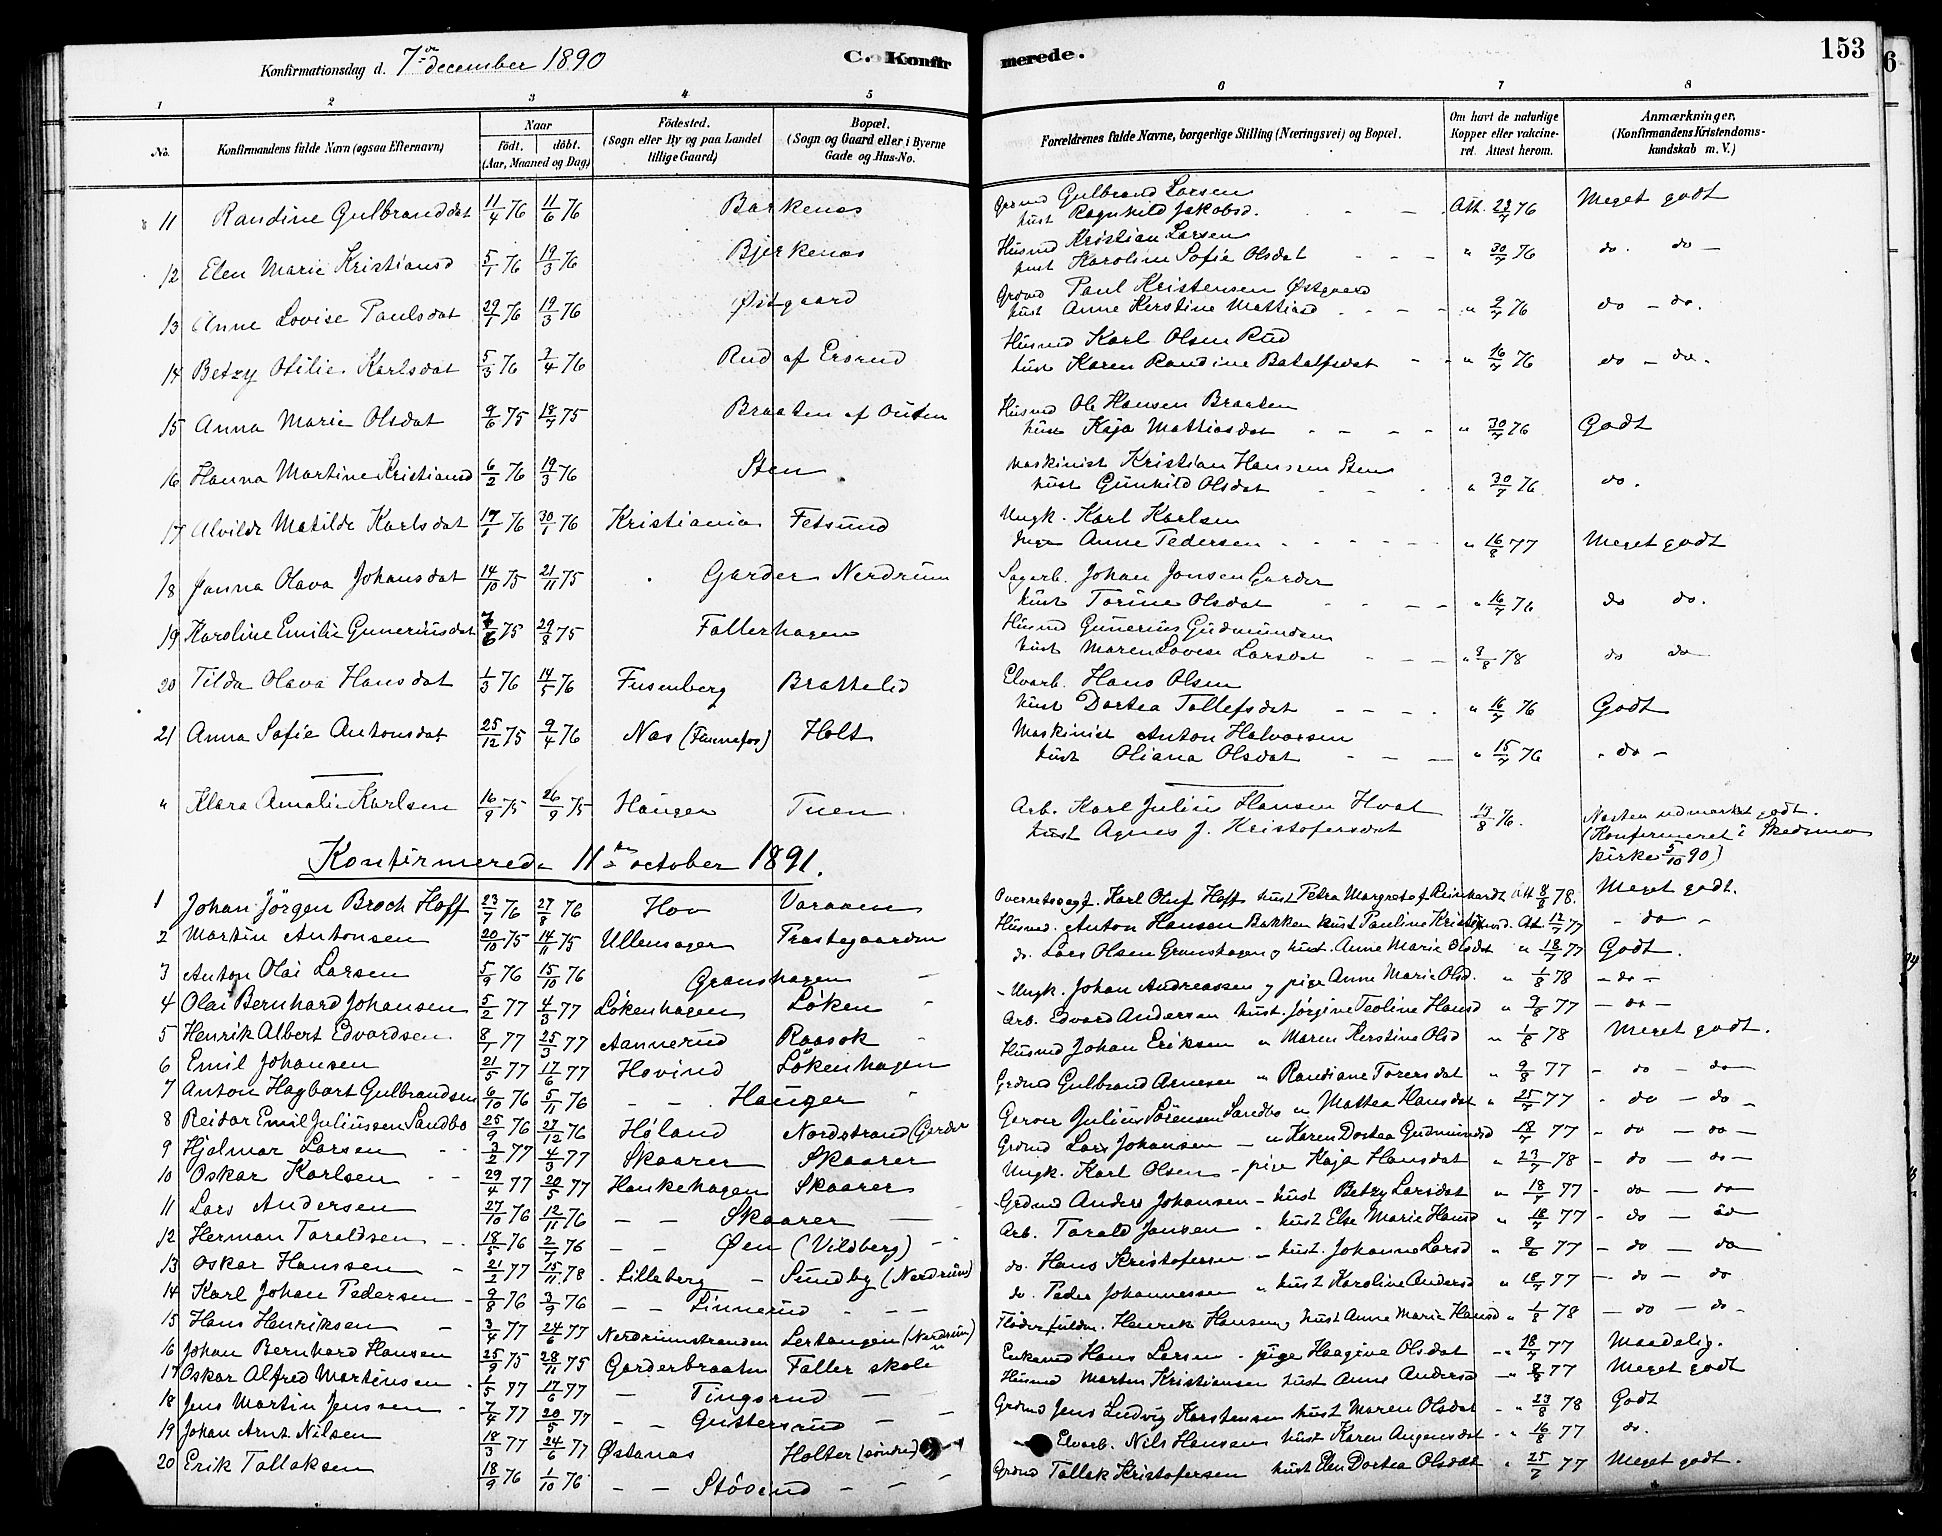 153
Konfirmationsdag d. 7de december 1890
C. Konfirmerede.
1 2 3 4 5 6 7 8
No.
Konfirmandens fulde Navn (ogsaa Efternavn)
Naar
Født. døbt.
(Aar, Maaned og Dag)
Fødested.
(Sogn eller By og paa Landet
tillige Gaard)
Bopæl.
(Sogn og Gaard eller i Byerne
Gade og Hus-No.
Forældrenes fulde Navne, borgerlige Stilling (Næringsvei) og Bopæl.
Om havt de naturlige
Kopper eller vakcine-
ret. Attest herom.
Anmærkninger,
(Konfirmandens Kristendoms-
kundskab m. V.)
11 Randine Gulbranddat 11/4 76 11/6 76 Barkenæs Grdmd Gulbrand Larsen Att. 23/7 76 Meget godt
hust Ragnhild Jakobsd.
12 Elen Marie Kristiansd 5/1 76 19/3 76 Bjerkenæs Husmd Kristian Larsen " 30/7 76 do. do
hust Karoline Sofie Olsdat
13 Anne Lovise Paulsdat 29/1 76 19/3 76 Østgaard Grdmd Paul Kristensen Østgaard " 2/7 76 do - do.
hust Anne Kerstine Mattiasd
14 Betzy Otilie Karlsdat 5/3 76 2/4 76 Rud af Ersrud Husmd Karl Olsen Rud " 16/7 76 do - do.
hust Karen Randine Botolfsdat
15 Anna Marie Olsdat 9/6 75 18/7 75 Braaten af Outen Husmd Ole Hansen Braaten " 30/7 76 Godt
hust Kaja Mattiasdat
16 Hanna Martine Kristiansd 6/2 76 19/3 76 Sten Maskinist Kristian Hanssen Sten " 30/7 76 do.
hust Gunhild Olsdat
17 Alvilde Matilde Karlsdat 17/1 76 30/1 76 Kristiania Fetsund Ungk. Karl Karlsen " 16/8 77 Meget godt
Pige Anne Pedersen
18 Janna Olava Johansdat 14/10 75 21/11 75 Garder Nerdrum Sagarb. Johan Jonsen Garder " 16/7 76 do do.
hust Torine Olsdat
19 Karoline Emilie Gunneriusdat 7/6 75 29/8 75 Fallerhagen Husmd Gunerius Gudmundsen " 9/8 78 do do
hust Maren Lovise Larsdat
20 Tilda Olava Hansdat 1/3 76 14/5 76 Fusenberg Brattelid Elvarb. Hans Olsen " 16/7 76 Godt
hust Dortea Tollefsdat
21 Anna Sofie Antonsdat 25/12 75 9/4 76 Næs (Funnefos) Holt Maskinist Anton Halvorsen " 15/7 76 " do -
hust Oliana Olsdat
" Klara Amalie Karlsen 16/9 75 26/9 75 Hauger Tuen. Arb. Karl Julius Hansen Hval 13/8 76. Næsten udmærket godt.
hust Agnes J. Kristofersdat (Konfirmeret i Skedsmo
kirke 5/10 90)
Konfirmerede 11te october 1891.
1 Johan Jörgen Broch Hoff 23/7 76 27/8 76 Hov Varaaen Overretssagf. Karl Oluf Hoff hust Petra Margrete f. Reinhardt Att 8/8 78. Meget godt.
2 Martin Antonsen 20/10 75 14/11 75 Ullensager Præstegaarden Husmd. Anton Hansen Bakken hust Pauline Kristofersd. Att. 12/7 77 - do -
3 Anton Olai Larsen 5/9 76 15/10 76 Granshagen do. Lars Olsen Granshagen og hust. Anne Marie Olsdat " 18/7 77 Godt.
4 Olai Bernhard Johansen 5/2 77 4/3 77 Løkenhagen Løken Ungk. Johan Andreassen og pige Anne Marie Olsd. " 1/8 78 - do -
5 Henrik Albert Edvardsen 8/1 77 25/3 77 Aannerud Raasok Arb. Edvard Andersen hust. Jørgine Teoline Hansd " 9/8 77 - do -
6 Emil Johansen 21/5 77 17/6 77 Hovind Løkenhagen Husmd Johan Eriksen " Maren Kerstine Olsd " 1/8 78 Meget godt.
7 Anton Hagbart Gulbrandsen 6/10 76 5/11 76 Hauger Grdmd Gulbrand Arnesen " Randiane Torersdat " 9/8 77 - do - do
8 Reidar Emil Juliussen Sandbo 25/9 76 27/12 76 Høland Nordstrand (Garder Garver Julius Sørensen Sandbo " Mattea Hansdat " 25/7 77 - do - do
9 Hjalmar Larsen 3/2 77 4/3 77 Skaarer Skaarer Grdmd Lars Johansen - " Karen Dortea Gudmundsd 18/7 77 - do - do -
10 Oskar Karlsen 29/4 77 20/5 77 Haukehagen Skaarer Ungk. Karl Olsen - pige Kaja Hansdat " 23/7 78 - do - do -
11 Lars Andersen 27/10 76 12/11 76 Skaarer Grdmd Anders Johansen - hust Betzy Larsdat " 18/7 77 - do - do
12 Herman Taraldsen 18/5 76 2/7 76 Øen (Vildberg) Arb. Tarald Jansen - hust Else Marie Hansd " 18/7 77 - do - do
13 Oskar Hanssen 21/2 77 15/11 78 Lilleberg Sundby (Nerdrum) do. Hans Kristofersen - hust. Johanne Larsd " 8/6 77 - do - do
14 Karl Johan Pedersen 9/8 76 3/9 76 Linnerud do. Peder Johannessen " hust Karoline Andersd " 18/7 77 - do - do
15 Hans Henriksen 3/4 77 24/6 77 Nerdrumstranden Lertangen (Nerdrum) Fløderfuldm. Henrik Hansen og hust Anne Marie Hansd " 1/8 78 - do - do -
16 Johan Bernhard Hansen 25/9 75 28/11 75 Garderbraaten Faller skole Enkemd Hans Larsen - pige Haagine Olsdat " 18/7 77 Maadelig.
17 Oskar Alfred Martinsen 1/5 77 17/6 77 Tingsrud Husmd Martin Kristiansen hust Anne Andersd " 8/8 77 Meget godt
18 Jens Martin Jenssen 7/4 77 20/5 77 Guttersrud Grdmd Jens Ludvig Karstensen hust Maren Olsdat " 23/8 78 Godt
19 Johan Arnt Nilsen 18/3 77 24/6 77 Østanæs Holter (søndre) Elvarb. Nils Hansen hust Karen Augensdat " 16/8 77 do.
20 Erik Tollaksen 18/9 76 1/10 76 Stövind Grdmd Tollak Kristofersen hust Elen Dortea Olsdat " 25/7 77 Meget godt.